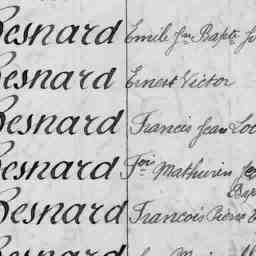 Besnard Emile Jn Bapte
Besnard Ernest Victor
Besnard Francis Jean
Besnard For Mathurin
Besnard Francois Pierre
Besnard